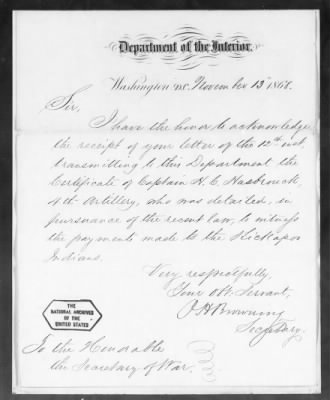 Department of the Interior,
Washington D.C. November 13th 1867.
Sir,
I have the honor to acknowledge
the receipt of your letter of the 12th inst.
transmitting to this Department the
Certificate of Captain H. C. Hasbrouck,
4th Artillery, who was detailed, in
pursuance of the recent law, to witness
the payments made to the Kickapoo
Indians.
Very respectfully,
Your Obt. Servant,
O H Browning
Secretary.
THE
NATIONAL ARCHIVES
OF THE
UNITED STATES
To the Honorable
the Secretary of War.